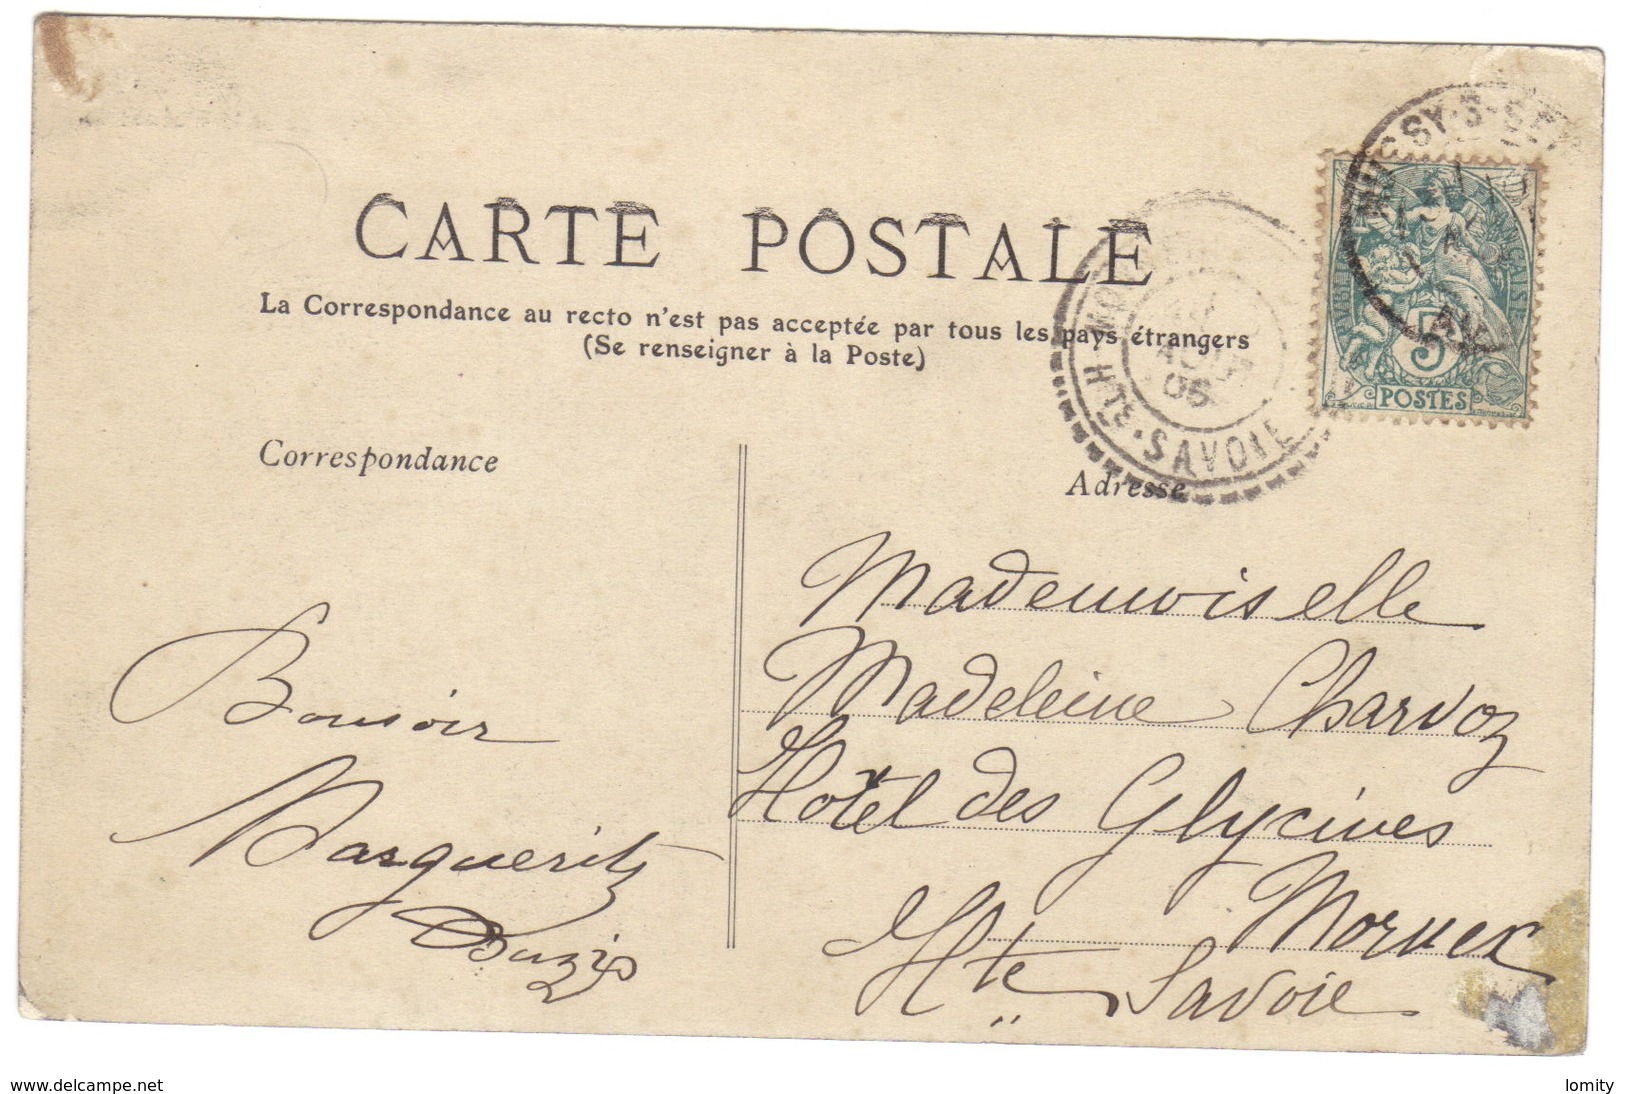 CARTE POSTALE
La Correspondance au recto n'est pas acceptée par tous les pays étrangers
(Se renseigner à la Poste)
Correspondance
Adresse
HTE-SAVOIE
AOUT
05
5
POSTES
Mademoiselle
Madeleine Charvoz
Hôtel des Glycines
Mornex
Hte Savoie
Bonsoir
Marguerite
www.delcampe.net
lomity